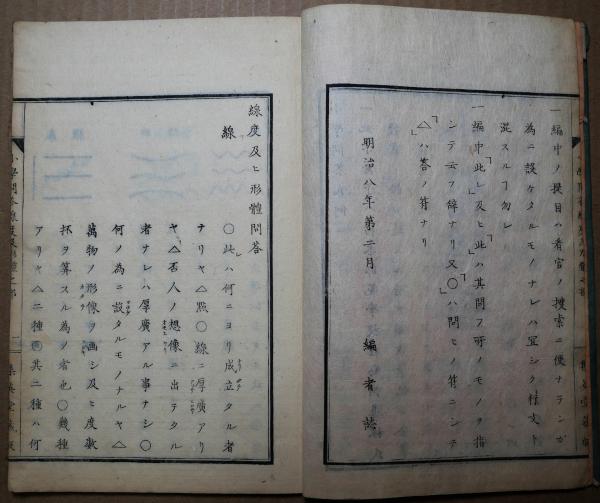 一編中ノ提目ハ看官ノ搜索ニ便ナランガ
為ニ設ケタルモノナレハ宜シク本文ト
混スルヿ勿レ
一編中「此レ」及ヒ「此」ハ其問フ所ノモノヲ指
シテ云フ辞ナリ又「〇」ハ問ヒノ符ニシテ
「△」ハ答ノ符ナリ
明治八年第二月
編者誌
線度及ヒ形體問答
線
〇此ハ何ニヨリ成立タル者
ナリヤ△㸃〇線ニ厚廣アリ
ヤ△否人ノ想像ニ出テタル
者ナレハ厚廣アル事ナシ〇
何ノ為ニ設タルモノナルヤ△
萬物ノ形像ヲ画シ及ヒ度數
抔ヲ算スル為ノ者也〇幾種
アリヤ△二種〇其二種ハ何